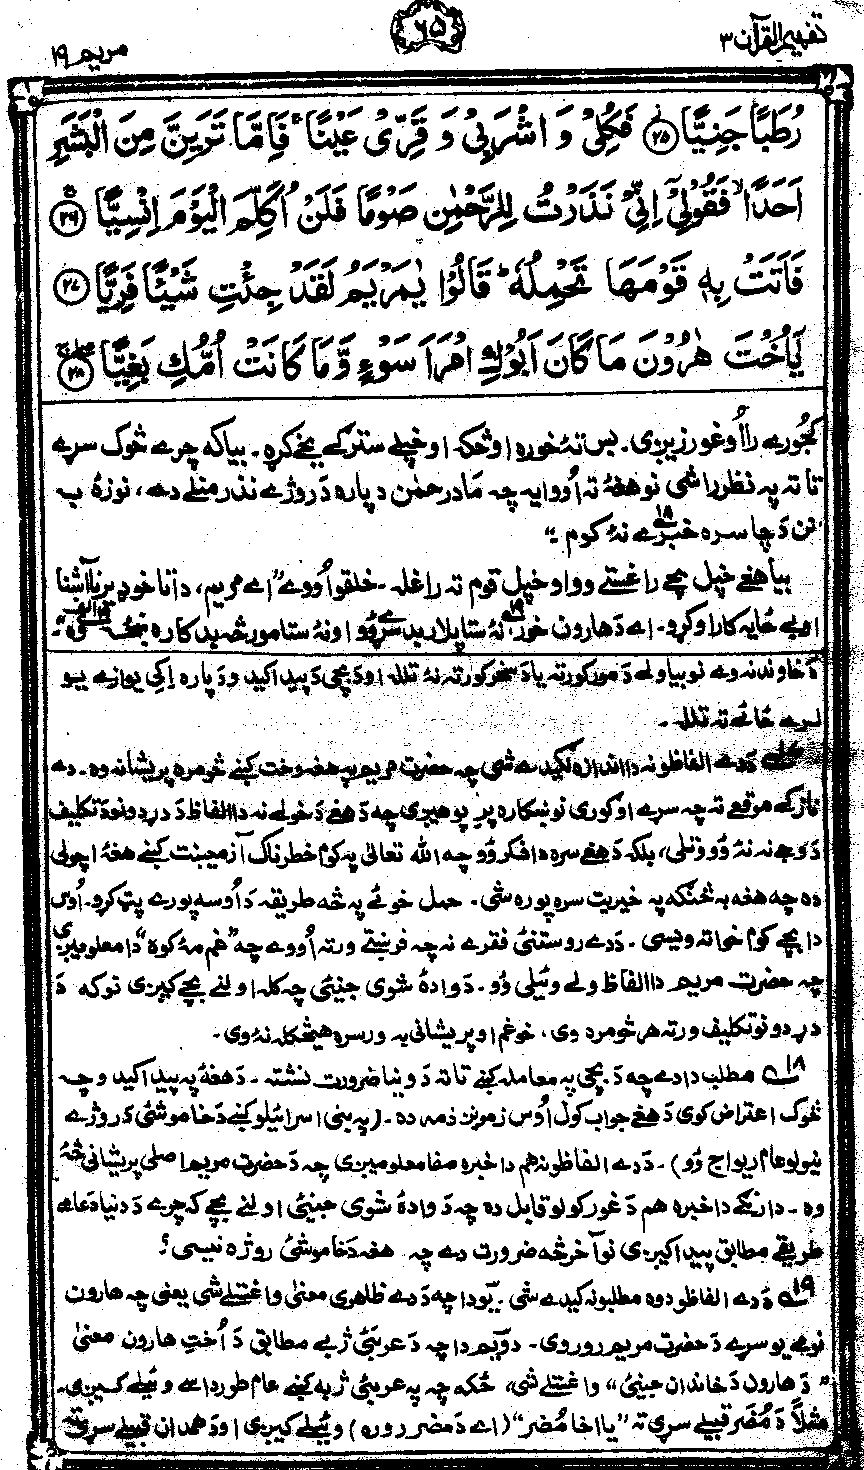 تفهيم القرآن ۳
۶۵
مريم ۱۹
رُطَبًا جَنِيًّا ﴿۲۵﴾ فَكُلِيْ وَ اشْرَبِيْ وَ قَرِّيْ عَيْنًا ۚ فَاِمَّا تَرَيِنَّ مِنَ الْبَشَرِ
اَحَدًا ۙ فَقُوْلِيْٓ اِنِّيْ نَذَرْتُ لِلرَّحْمٰنِ صَوْمًا فَلَنْ اُكَلِّمَ الْيَوْمَ اِنْسِيًّا ﴿۲۶﴾
فَاَتَتْ بِهٖ قَوْمَهَا تَحْمِلُهٗ ؕ قَالُوْا يٰمَرْيَمُ لَقَدْ جِئْتِ شَيْئًا فَرِيًّا ﴿۲۷﴾
يٰٓاُخْتَ هٰرُوْنَ مَا كَانَ اَبُوْكِ امْرَاَ سَوْءٍ وَّ مَا كَانَتْ اُمُّكِ بَغِيًّا ﴿۲۸﴾
کجُورے رااُوغورزيږی. بس تۀ خوره او څکه او خپلے سترګے يخے کړه. بيا که چرے څوک سړے
تا ته په نظر راشی نو هغۀ ته اُووايه چه ما د رحمٰن دپاره د روژے نذر منلے دے، نو زۀ به
نن د چا سره خبرے نۀ کوم ۱۸"
بيا هغے خپل بچے راغستے وو او خپل قوم ته راغله. خلقو اُووے "اے مريم، دا تا خو ډېر ناآشنا
اے د هارون خورے، ۱۹ نۀ ستا پلار بد سړے وُو او نۀ ستا مور څه بدکاره ښځه وه"
د خاوند نه وے نو بيا ولے د مور کور ته يا د سخر کور ته نۀ تلله او د بچی د پيدا کيدو دپاره اِکی يوازے يو
لرے ځائے ته تلله.
۱۷ د دے الفاظو نه دا اندازه لګيدے شی چه حضرت مريم په هغه وخت کښے څومره پريشانه وه. دے
نازکے موقعے ته چه سړے اوګوری نو ښکاره پرِ پوهيږی چه د هغے د خولے نه دا الفاظ د دردونو د تکليف
د وجے نه نۀ وُو وتلی، بلکه د هغے سره دا فکر وُو چه الله تعالیٰ په کوم خطرناک آزمېښت کښے هغه اچولی
ده چه هغه به څنګه په خيريت سره پوره شی. حمل خو ئے په څه طريقه د اُوسه پورے پټ کړو. اُوس
دا بچے کوم خوا ته ويسی. د دے روستنئی فقرے نه چه فرښتے ورته اُووے چه "غم مۀ کوه" دا معلوميږی
چه حضرت مريم دا الفاظ ولے وئيلی وُو. د وادۀ شوی جينئی چه کله اولنے بچے کيږی نو که د
دردونو تکليف ورته هر څومره وی، خو غم او پريشانی يه ورسره هيڅکله نۀ وی.
۱۸ مطلب دا دے چه د بچی په معامله کښے تا ته د وينا ضرورت نشته. د هغۀ په پيدا کيدو چه
څوک اعتراض کوی د هغے جواب کول اُوس زمونږ ذمه ده. (په بنی اسرائيلو کښے د خاموشئی د روژے
نيولو عام رواج وُو). د دے الفاظو نه هم دا خبره صفا معلوميږی چه د حضرت مريم اصلی پريشانی څۀ
وه. دارنګے دا خبره هم د غور کولو قابل ده چه د وادۀ شوی جينئی اولنے بچے که چرے د دنيا د عامے
طريقے مطابق پيدا کيږی نو آخر څه ضرورت دے چه هغه د خاموشئی روژه نيسی؟
۱۹ د دے الفاظو دوه مطلبونه کيدے شی. يو دا چه د دے ظاهری معنیٰ واغستلے شی يعنی چه هارون
نومے يو سړے د حضرت مريم رور وی. دويم دا چه د عربئی ژبے مطابق د اُختِ هارون معنیٰ
"د هارون د خاندان جينئی" واغستلے شی، ځکه چه په عربئی ژبه کښے عام طور داسے وئيلے کيږی.
مثلاً د مُضَر قبيلے سړی ته "يا اخا مُضَر" (اے د مضر روره) وئيلے کيږی او د همدان قبيلے سړی ته